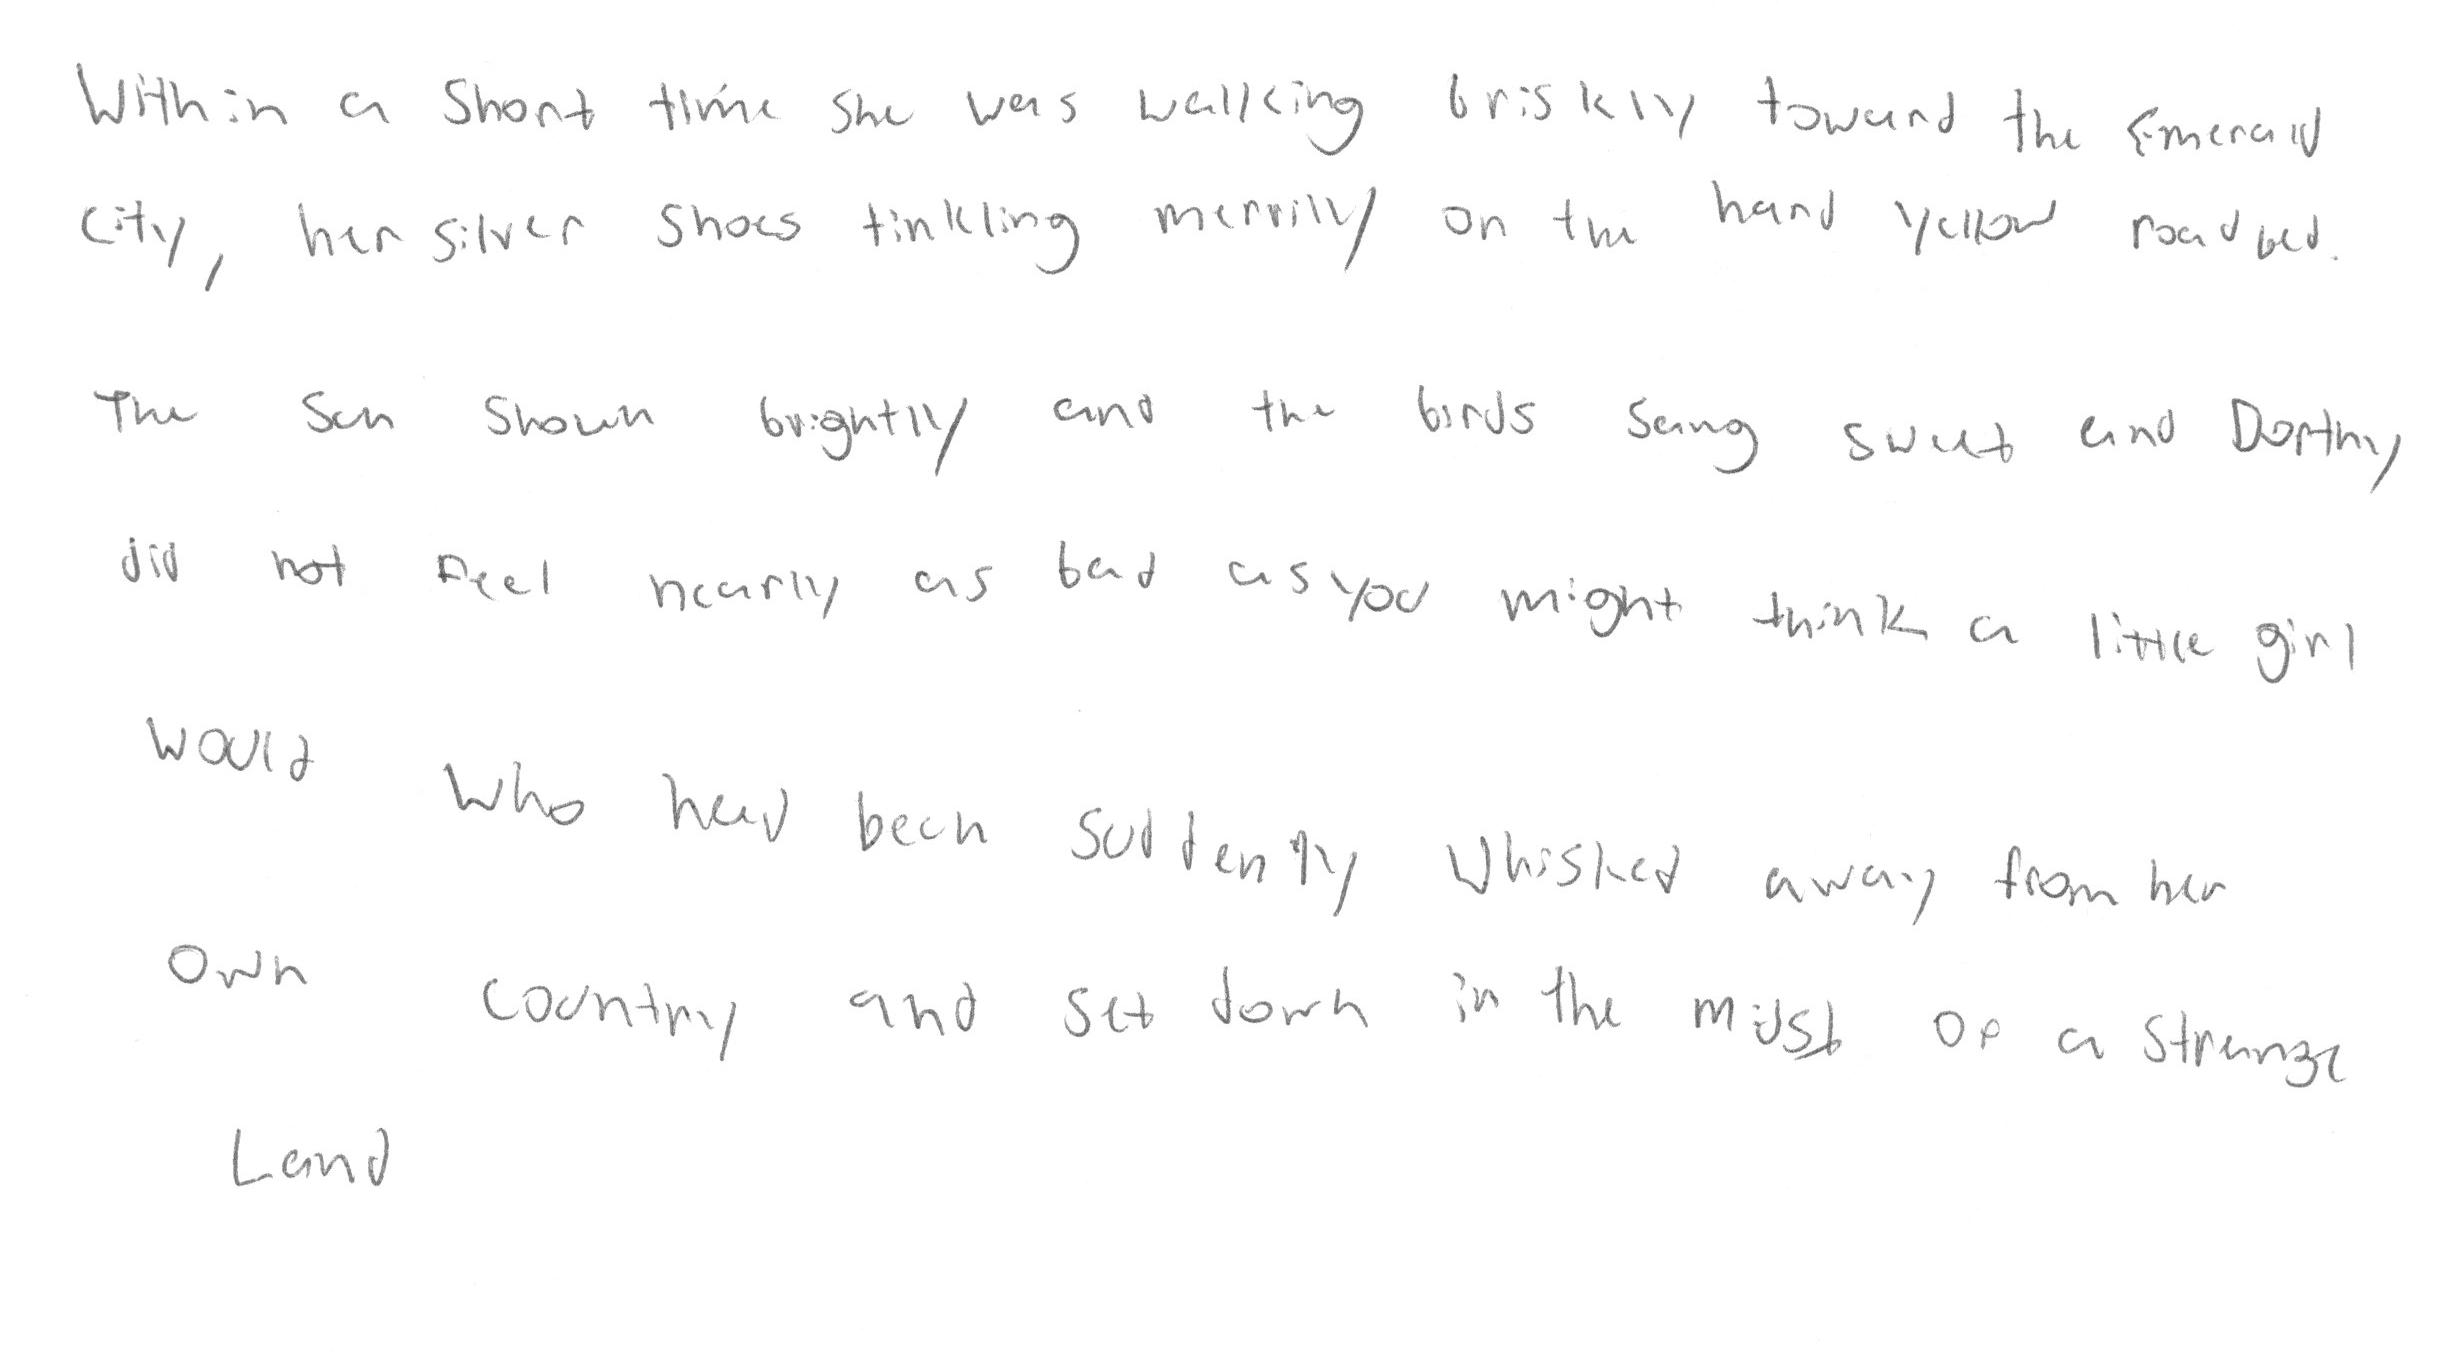 Within a Short time she was walking briskly toward the Emerald
City, her silver Shoes tinkling merrily on the hard yellow roadbed.
The Sun Shown brightly and the birds Sang sweet and Dorthy
did not Feel nearly as bad as you might think a little girl
would who had been suddenly whisked away from her
own country and set down in the midst of a strange
Land